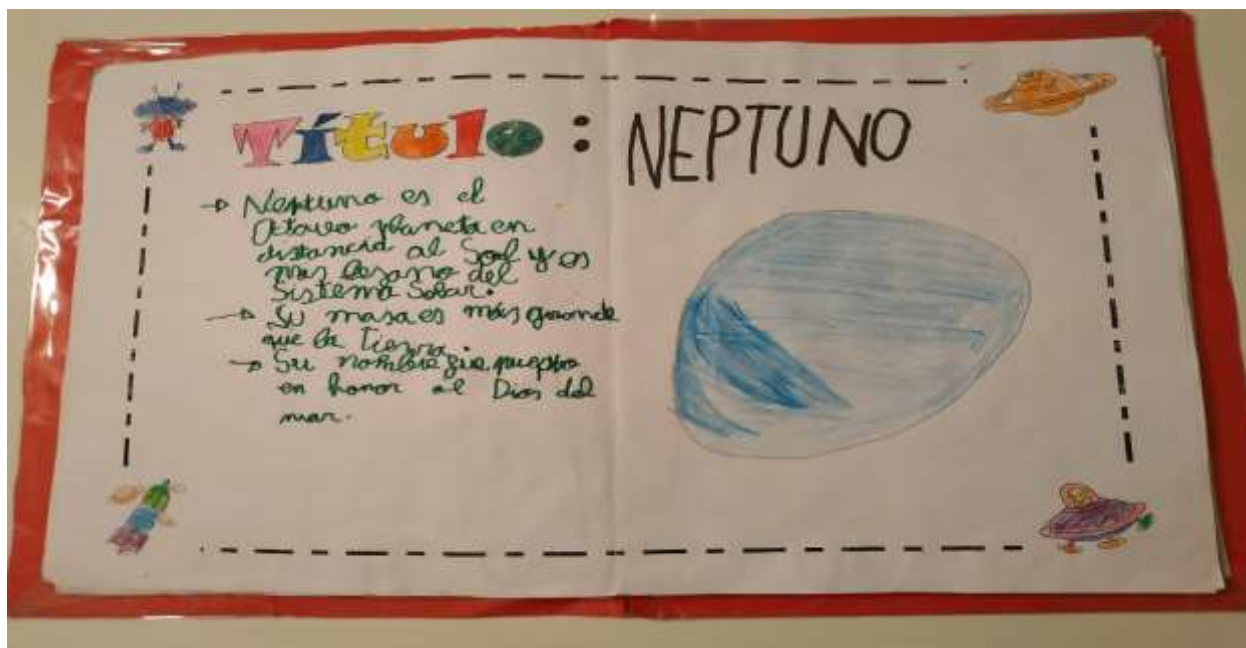 Título: NEPTUNO
→ Neptuno es el
Octavo planeta en
distancia al Sol y es
mas lejano del
Sistema Solar.
→ Su masa es más grande
que la Tierra
→ Su nombre fue puesto
en honor al Dios del
mar.